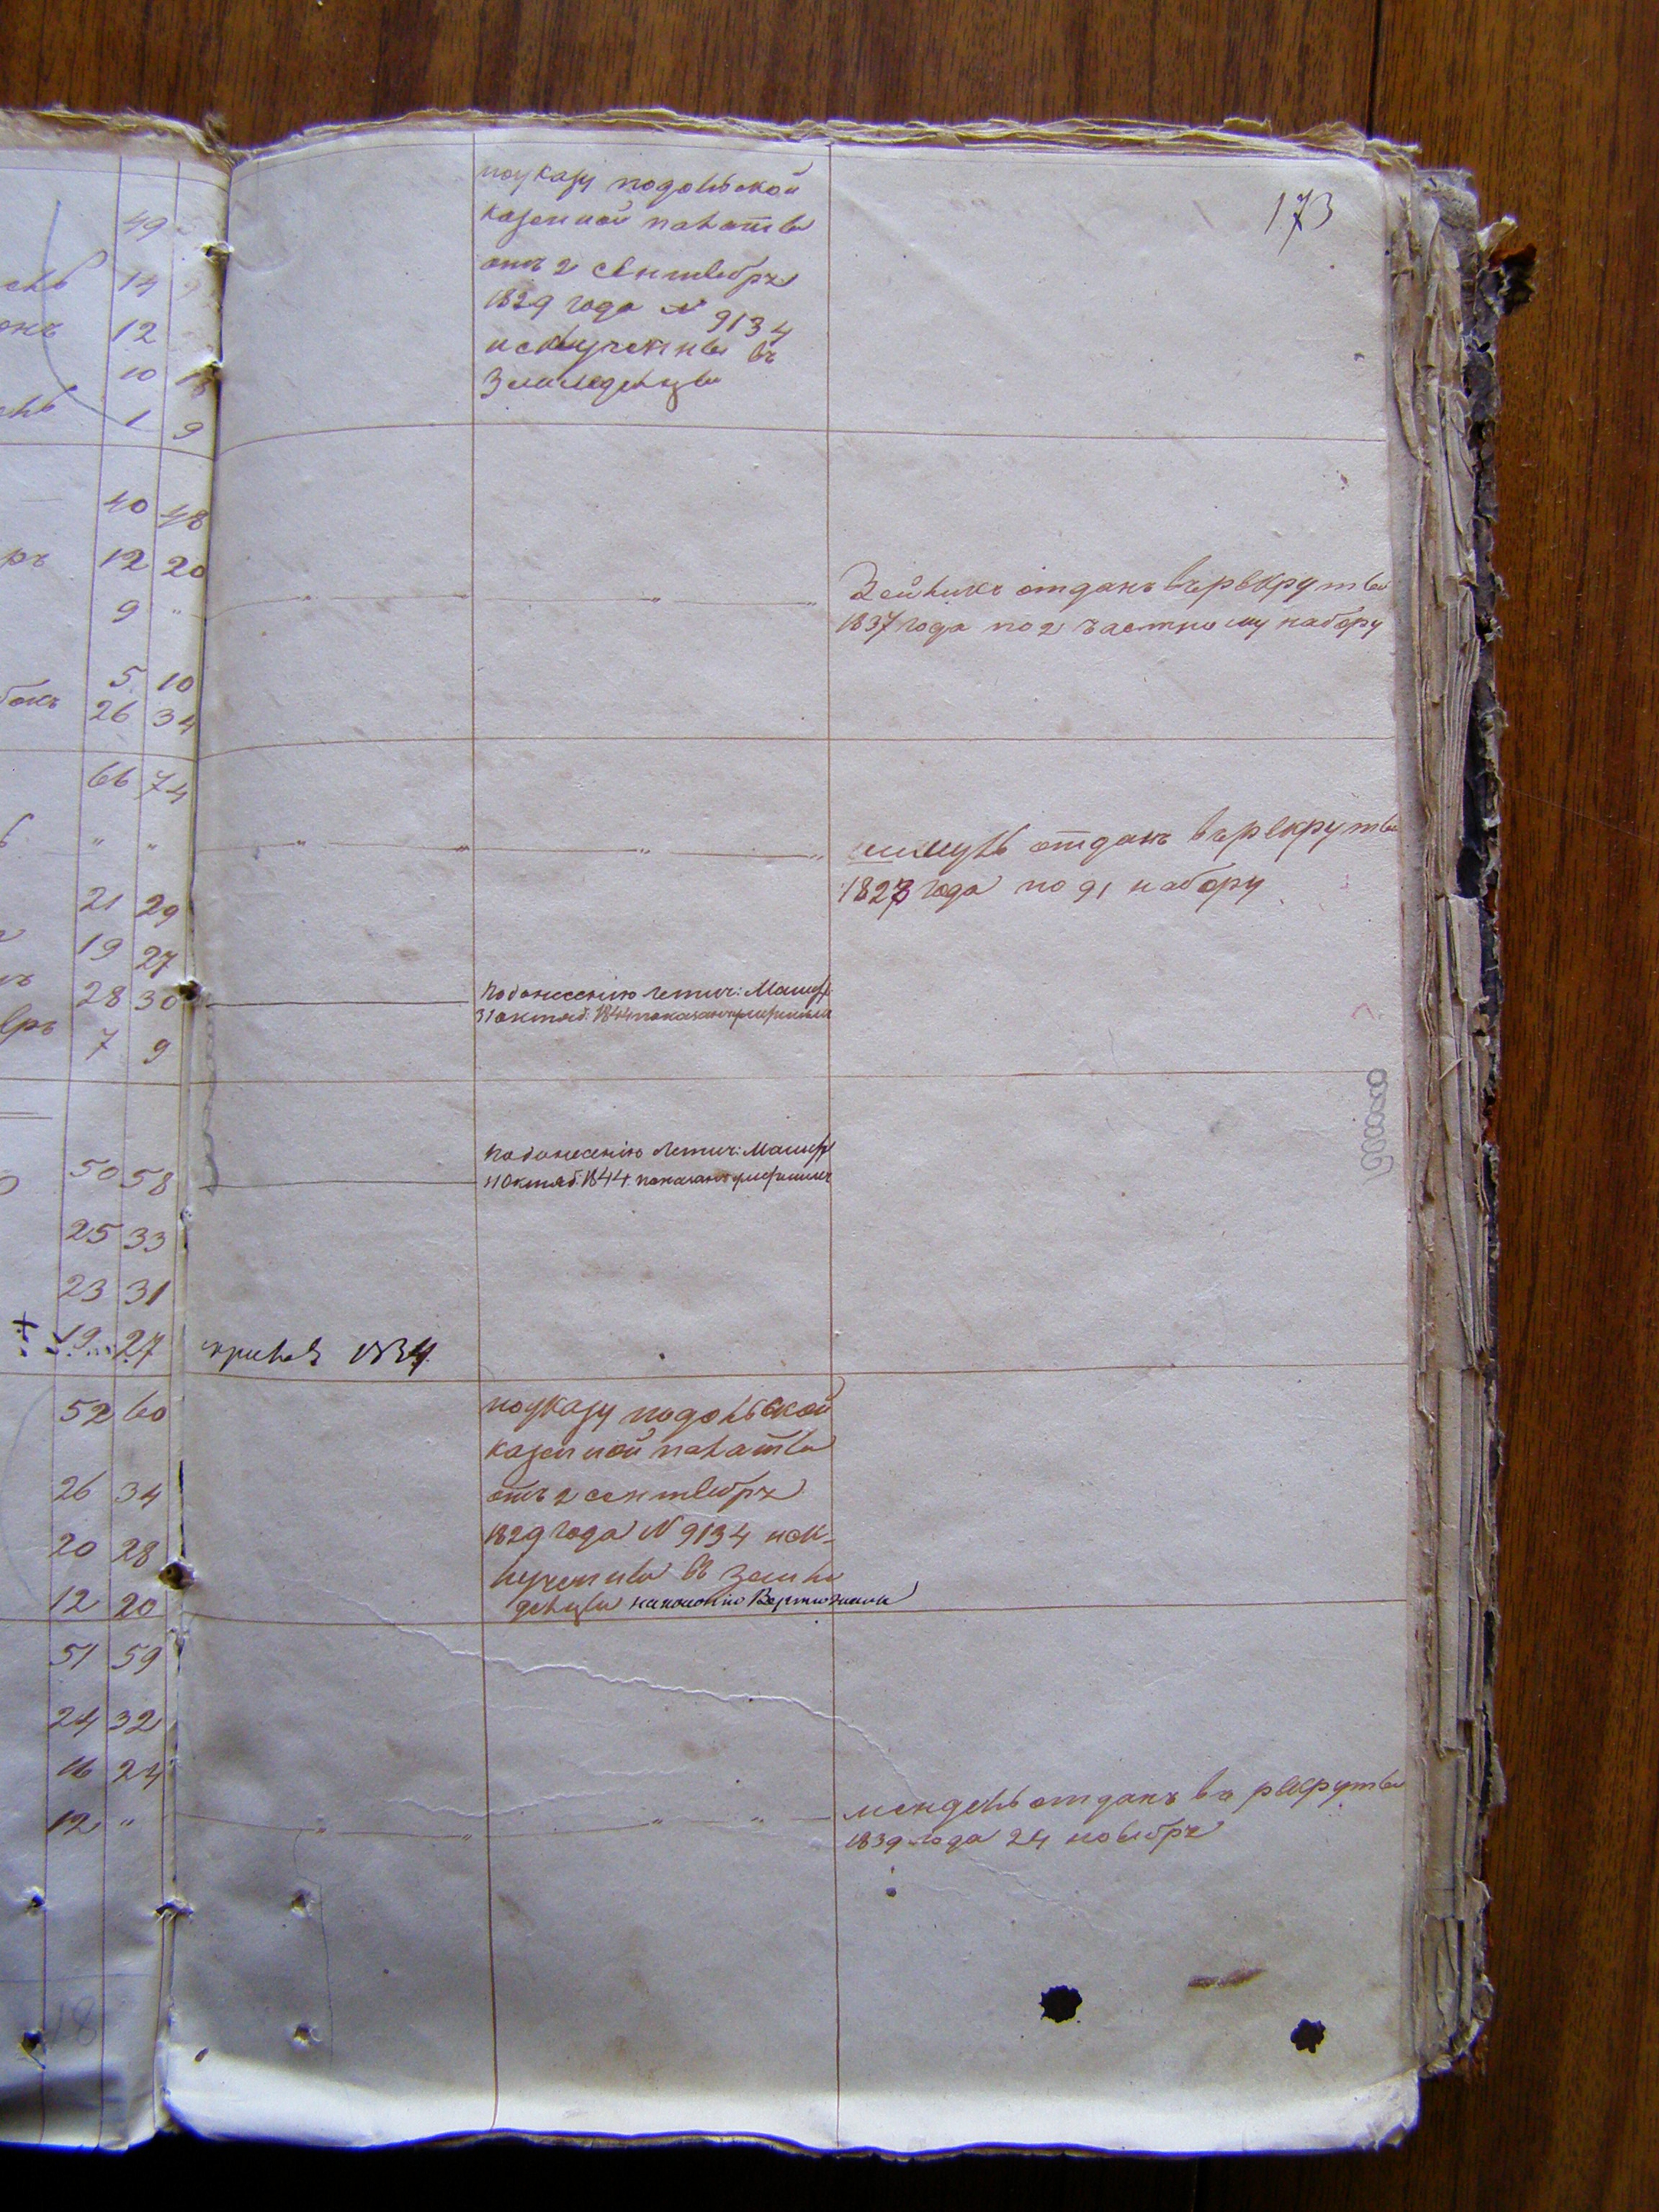 173
49
14
12
10
1 9
40 48
12 20
9 "
5 10
26 34
66 74
" "
21 29
19 27
28 30
7 9
50 58
25 33
23 31
19 27
52 60
26 34
20 28
12 20
51 59
24 32
16 24
12 "
по указу подольской
казенной палаты
отъ 2 сентября
1829 года № 9134
исключены въ
Земледельцы
Зейликъ отданъ въ рекруты
1837 года по 2 частному набору
шмуль отданъ въ рекруты
1828 года по 91 набору
По донесению Летич:
31 октяб: 1844 показанъ
По донесению Летич:
11 Октяб: 1844 показанъ
1834
по указу подольской
казенной палаты
отъ 2 сентября
1829 года № 9134 иск-
лучены въ земле
дельцы
мендель отданъ въ рекруты
1839 года 24 ноября